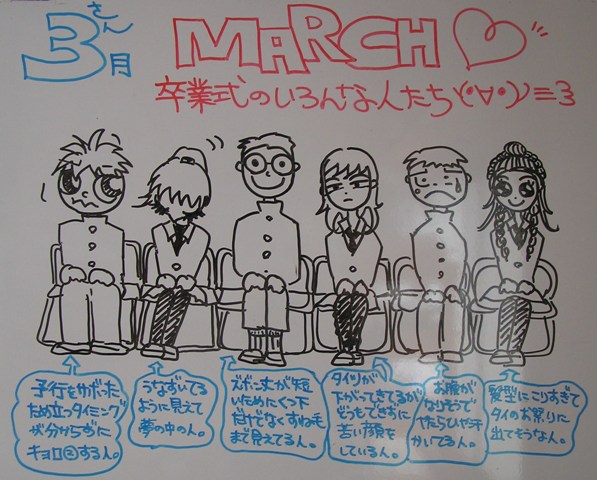 3月
さん
MARCH♡
卒業式のいろんな人たち(・∀・)ノ=3
予行をサボった
ため立つタイミング
が分からずに
キョロ②する人。
うなずいてる
ように見えて
夢の中の人。
ズボン丈が短
いためにくつ下
だけでなくすね毛
まで見えてる人。
タイツが
下がってきてるが
どうもできずに
苦い顔を
している人。
お腹が
なりそうで
でたらひや汗
かいてる人。
髪型にこりすぎて
タイのお祭りに
出てそうな人。